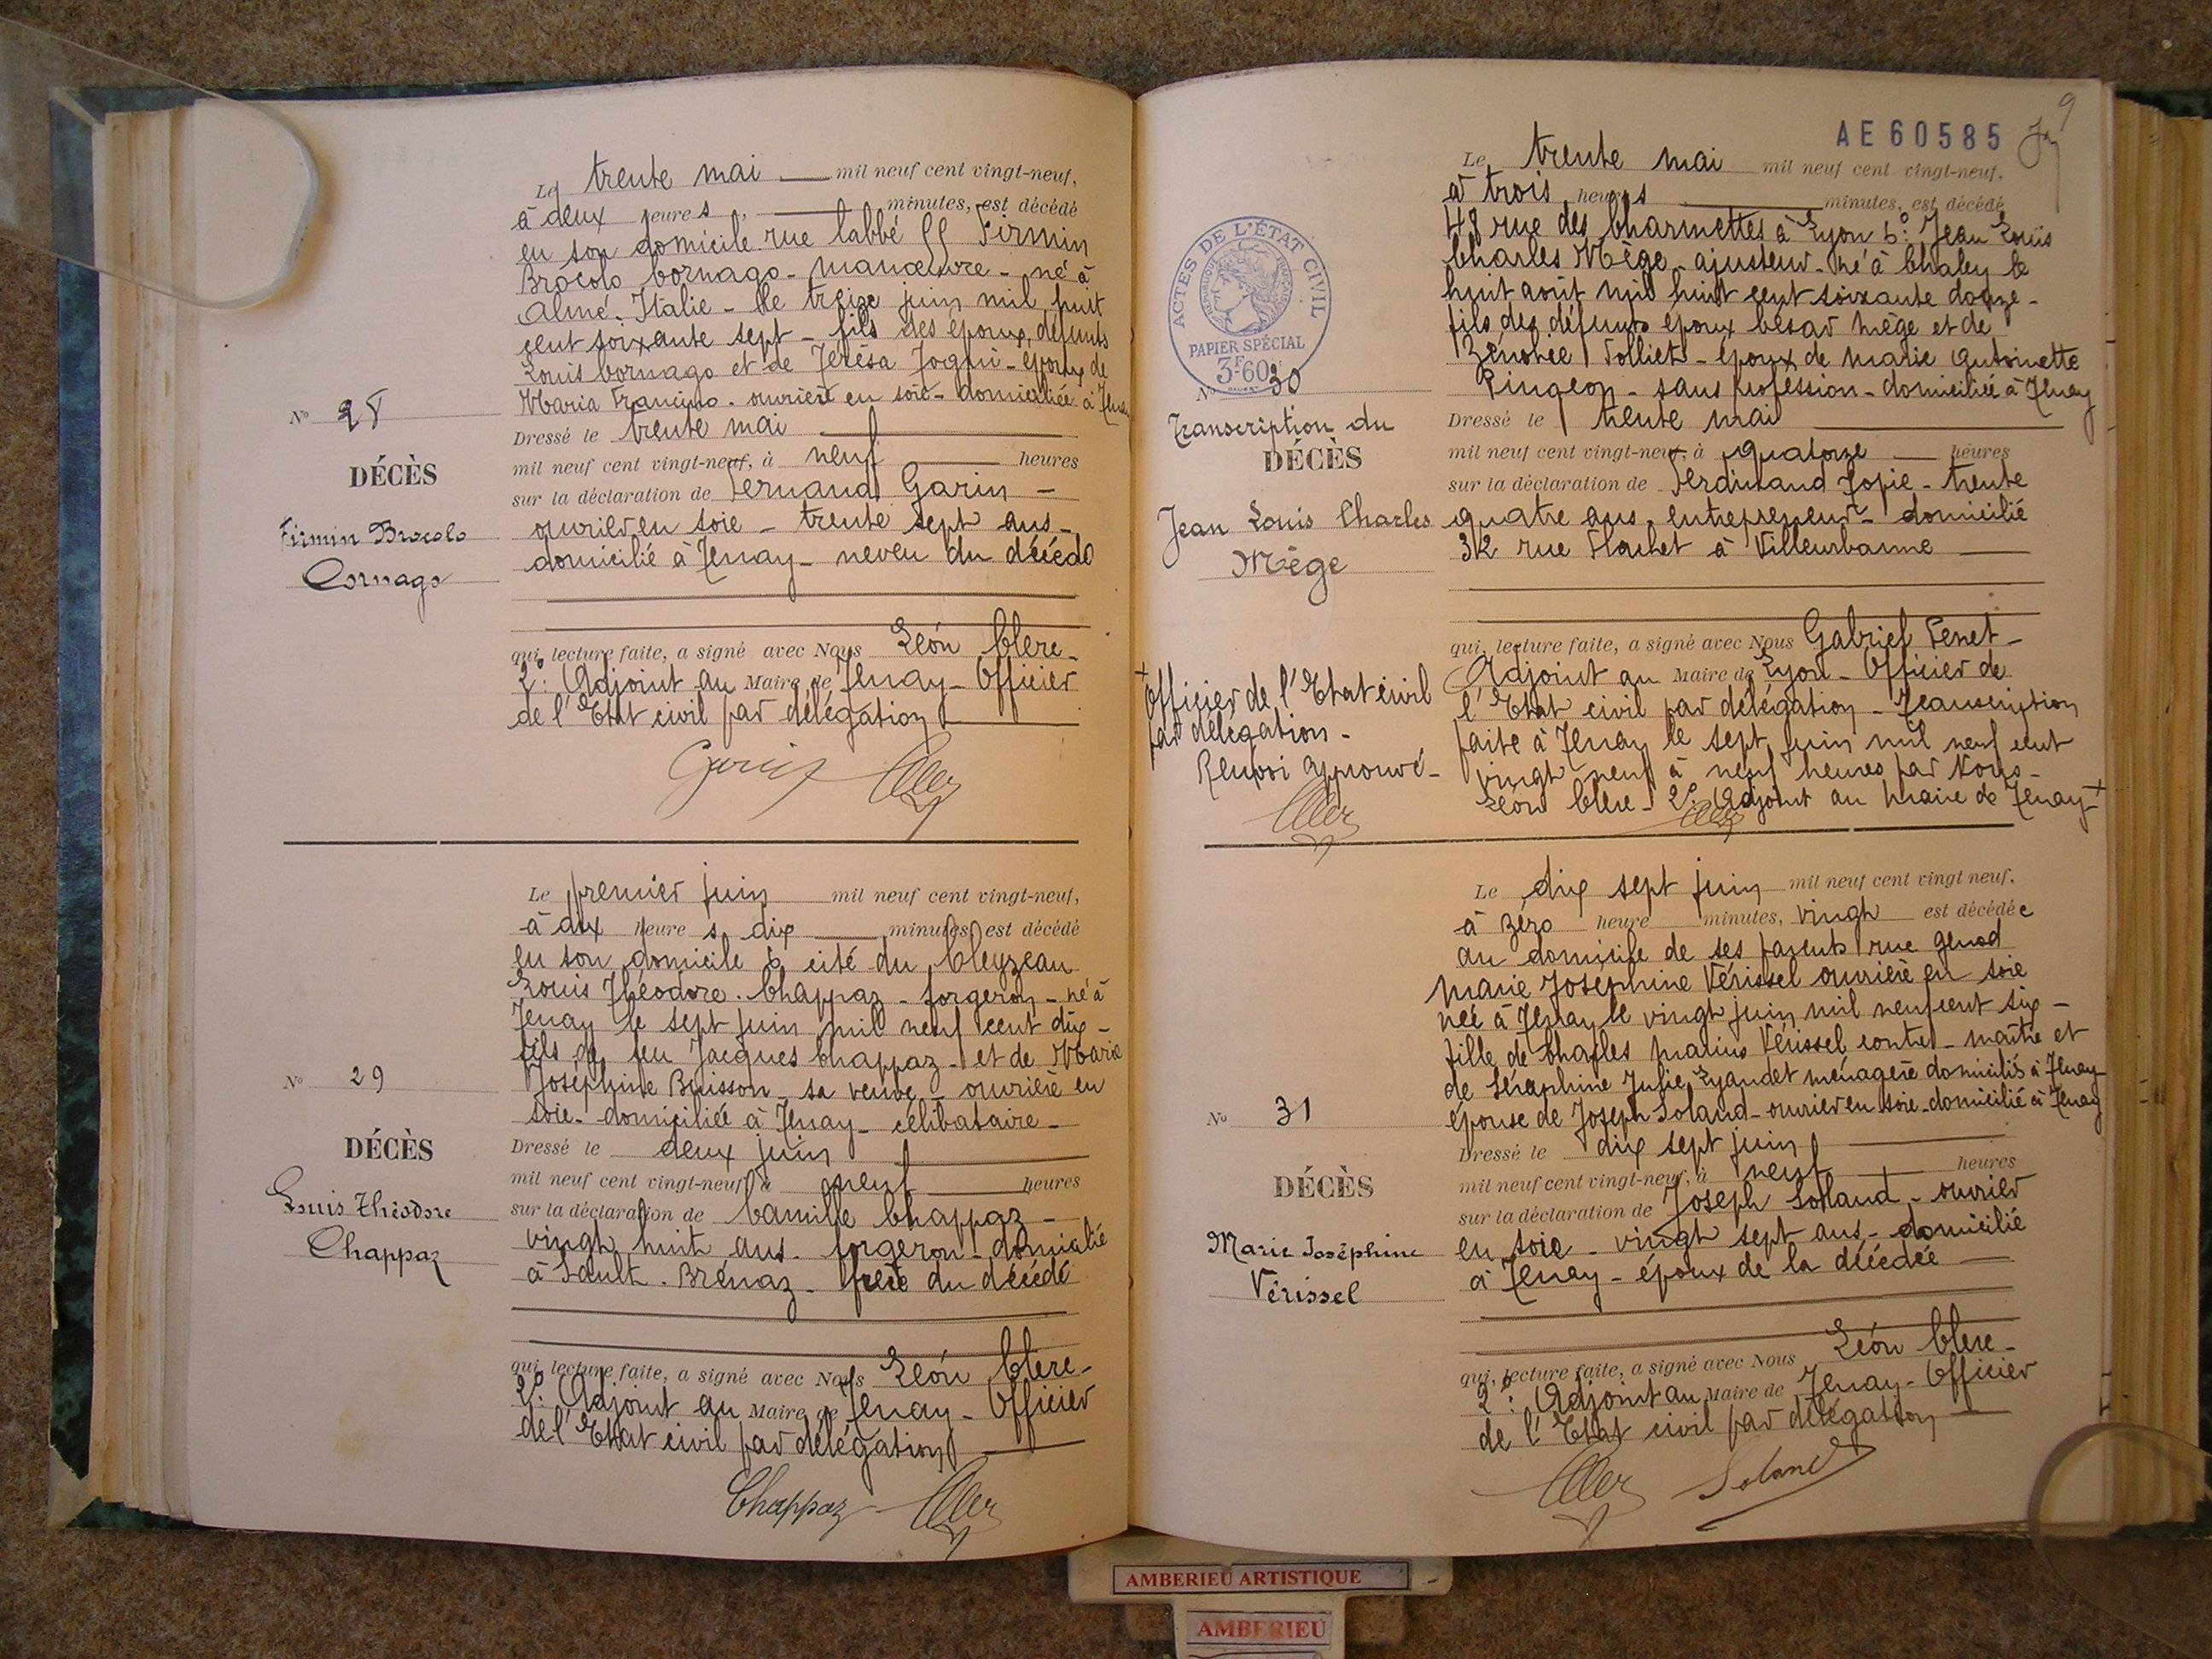 Le trente mai mil neuf cent vingt-neuf,
à deux heures, minutes, est décédé
en son domicile rue labbé Firmin
Brocolo Cornago - manœuvre - né à
Almé - Italie - le treize juin mil huit
cent soixante sept - fils des époux défunts
Louis Cornago et de Térésa - époux de
Maria - ouvrière en soie - domiciliée à Tenay
Nº 28
DÉCÈS
Firmin Brocolo
Cornago
Dressé le trente mai
mil neuf cent vingt-neuf, à neuf heures
sur la déclaration de Fernand Garin -
ouvrier en soie - trente sept ans -
domicilié à Tenay - neveu du décédé
qui, lecture faite, a signé avec Nous Léon Clerc -
2º: Adjoint au Maire de Tenay - Officier
de l'Etat civil par délégation
Garin
Le premier juin mil neuf cent vingt-neuf,
à dix heures dix minutes, est décédé
en son domicile cité du Cleyzeau
Louis Théodore Chappaz - forgeron - né à
Tenay le sept juin mil neuf cent dix -
fils de feu Jacques Chappaz - et de Marie
Joséphine Buisson - sa veuve - ouvrière en
soie - domiciliée à Tenay - célibataire -
Nº 29
DÉCÈS
Louis Théodore
Chappaz
Dressé le deux juin
mil neuf cent vingt-neuf, à neuf heures
sur la déclaration de Camille Chappaz -
vingt huit ans - forgeron - domicilié
à Sault - Brénaz - frère du décédé
qui, lecture faite, a signé avec Nous Léon Clerc -
2º: Adjoint au Maire de Tenay - Officier
de l'Etat civil par délégation
Chappaz
9
AE 60585
ACTES DE L'ÉTAT CIVIL
RÉPUBLIQUE FRANÇAISE
PAPIER SPÉCIAL
3F60
Le trente mai mil neuf cent vingt-neuf,
à trois heures minutes, est décédé
48 rue des Charmettes à Lyon 6º: Jean Louis
Charles Mège - ajusteur - né à Chaley le
huit août mil huit cent soixante douze -
fils des défunts époux César Mège et de
Zénobie Tolliet - époux de Marie Antoinette
Pingeon - sans profession - domiciliée à Tenay
Nº 30
Transcription du
DÉCÈS
Jean Louis Charles
Mège
Dressé le trente mai
mil neuf cent vingt-neuf, à quatorze heures
sur la déclaration de Ferdinand - trente
quatre ans - entrepreneur - domicilié
32 rue Flachet à Villeurbanne
qui, lecture faite, a signé avec Nous Gabriel
Adjoint au Maire de Lyon - Officier de
l'Etat civil par délégation - Transcription
faite à Tenay le sept juin mil neuf cent
vingt neuf à neuf heures par Nous -
Léon Clerc - 2º: Adjoint au Maire de Tenay +
+
Officier de l'Etat civil
par délégation -
Renvoi approuvé -
Le dix sept juin mil neuf cent vingt neuf,
à zéro heure minutes, vingt est décédée
au domicile de ses parents rue Genod
Marie Joséphine Vérissel ouvrière en soie
née à Tenay le vingt juin mil neuf cent six -
fille de Charles Marius Vérissel contre-maître et
de Séraphine Julie Lyaudet ménagère domiciliés à Tenay
épouse de Joseph Soland - ouvrier en soie - domicilié à Tenay
Nº 31
DÉCÈS
Marie Joséphine
Vérissel
Dressé le dix sept juin
mil neuf cent vingt-neuf, à neuf heures
sur la déclaration de Joseph Soland - ouvrier
en soie - vingt sept ans - domicilié
à Tenay - époux de la décédée
qui, lecture faite, a signé avec Nous Léon Clerc -
2º: Adjoint au Maire de Tenay - Officier
de l'Etat civil par délégation
Soland
AMBERIEU ARTISTIQUE
AMBERIEU